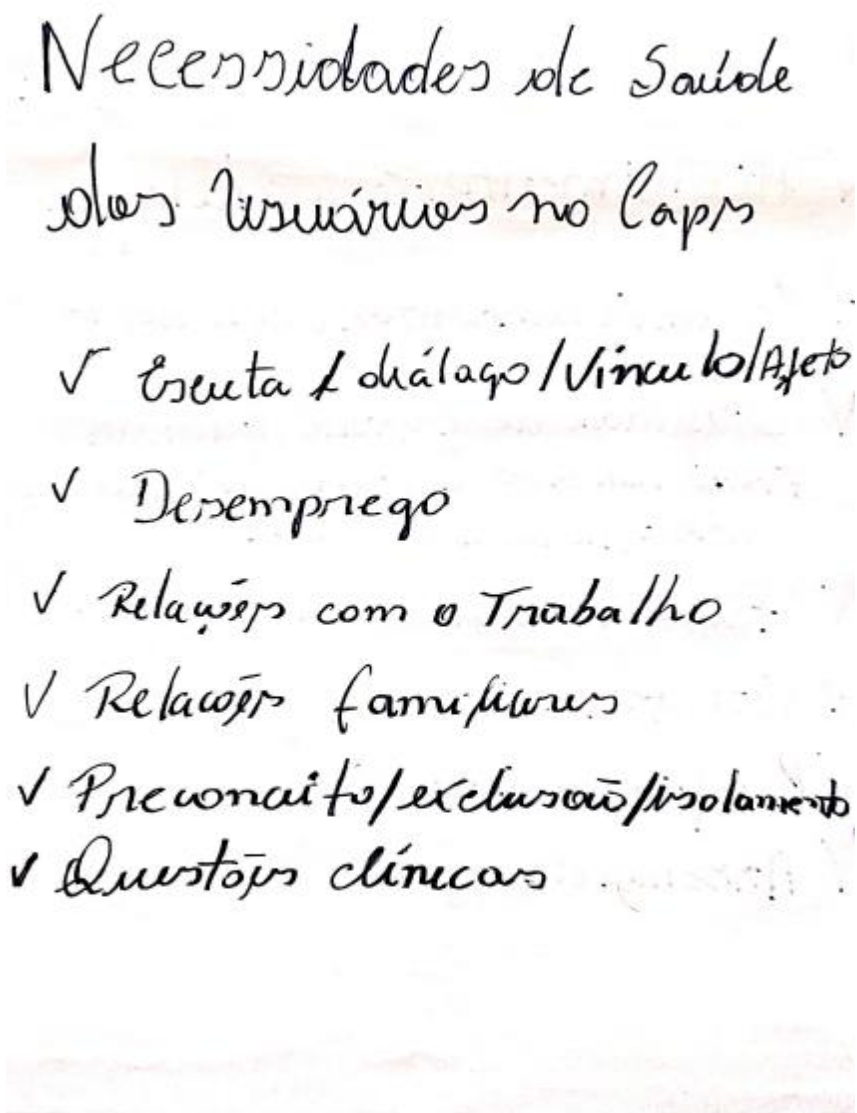 Necessidades de Saúde
dos Usuários no Caps
✓ Escuta / diálago/Vínculo/Afeto
✓ Desemprego
✓ Relações com o Trabalho
✓ Relações familiares
✓ Preconceito/exclusão/isolamento
✓ Questões clínicas